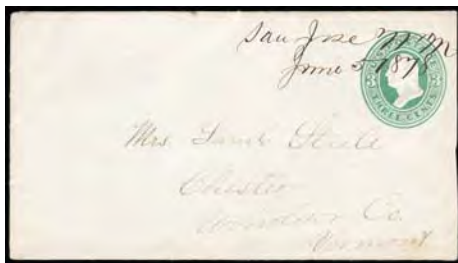 San Jose N M
June 5 1878
U.S. POSTAGE
THREE CENTS
Mrs. Sarah Steele
Chester
Windsor Co.
Vermont